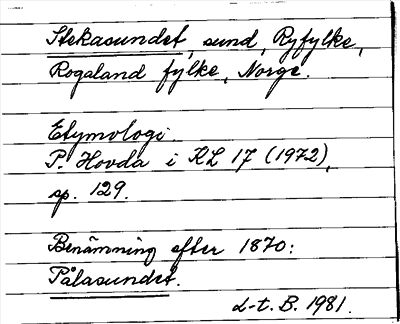 Stekasundet, sund, Ryfylke,
Rogaland fylke, Norge.
Etymologi
P. Hovda i KL 17 (1972),
sp. 129.
Benämning efter 1870:
Pålasundet.
L-t. B. 1981.